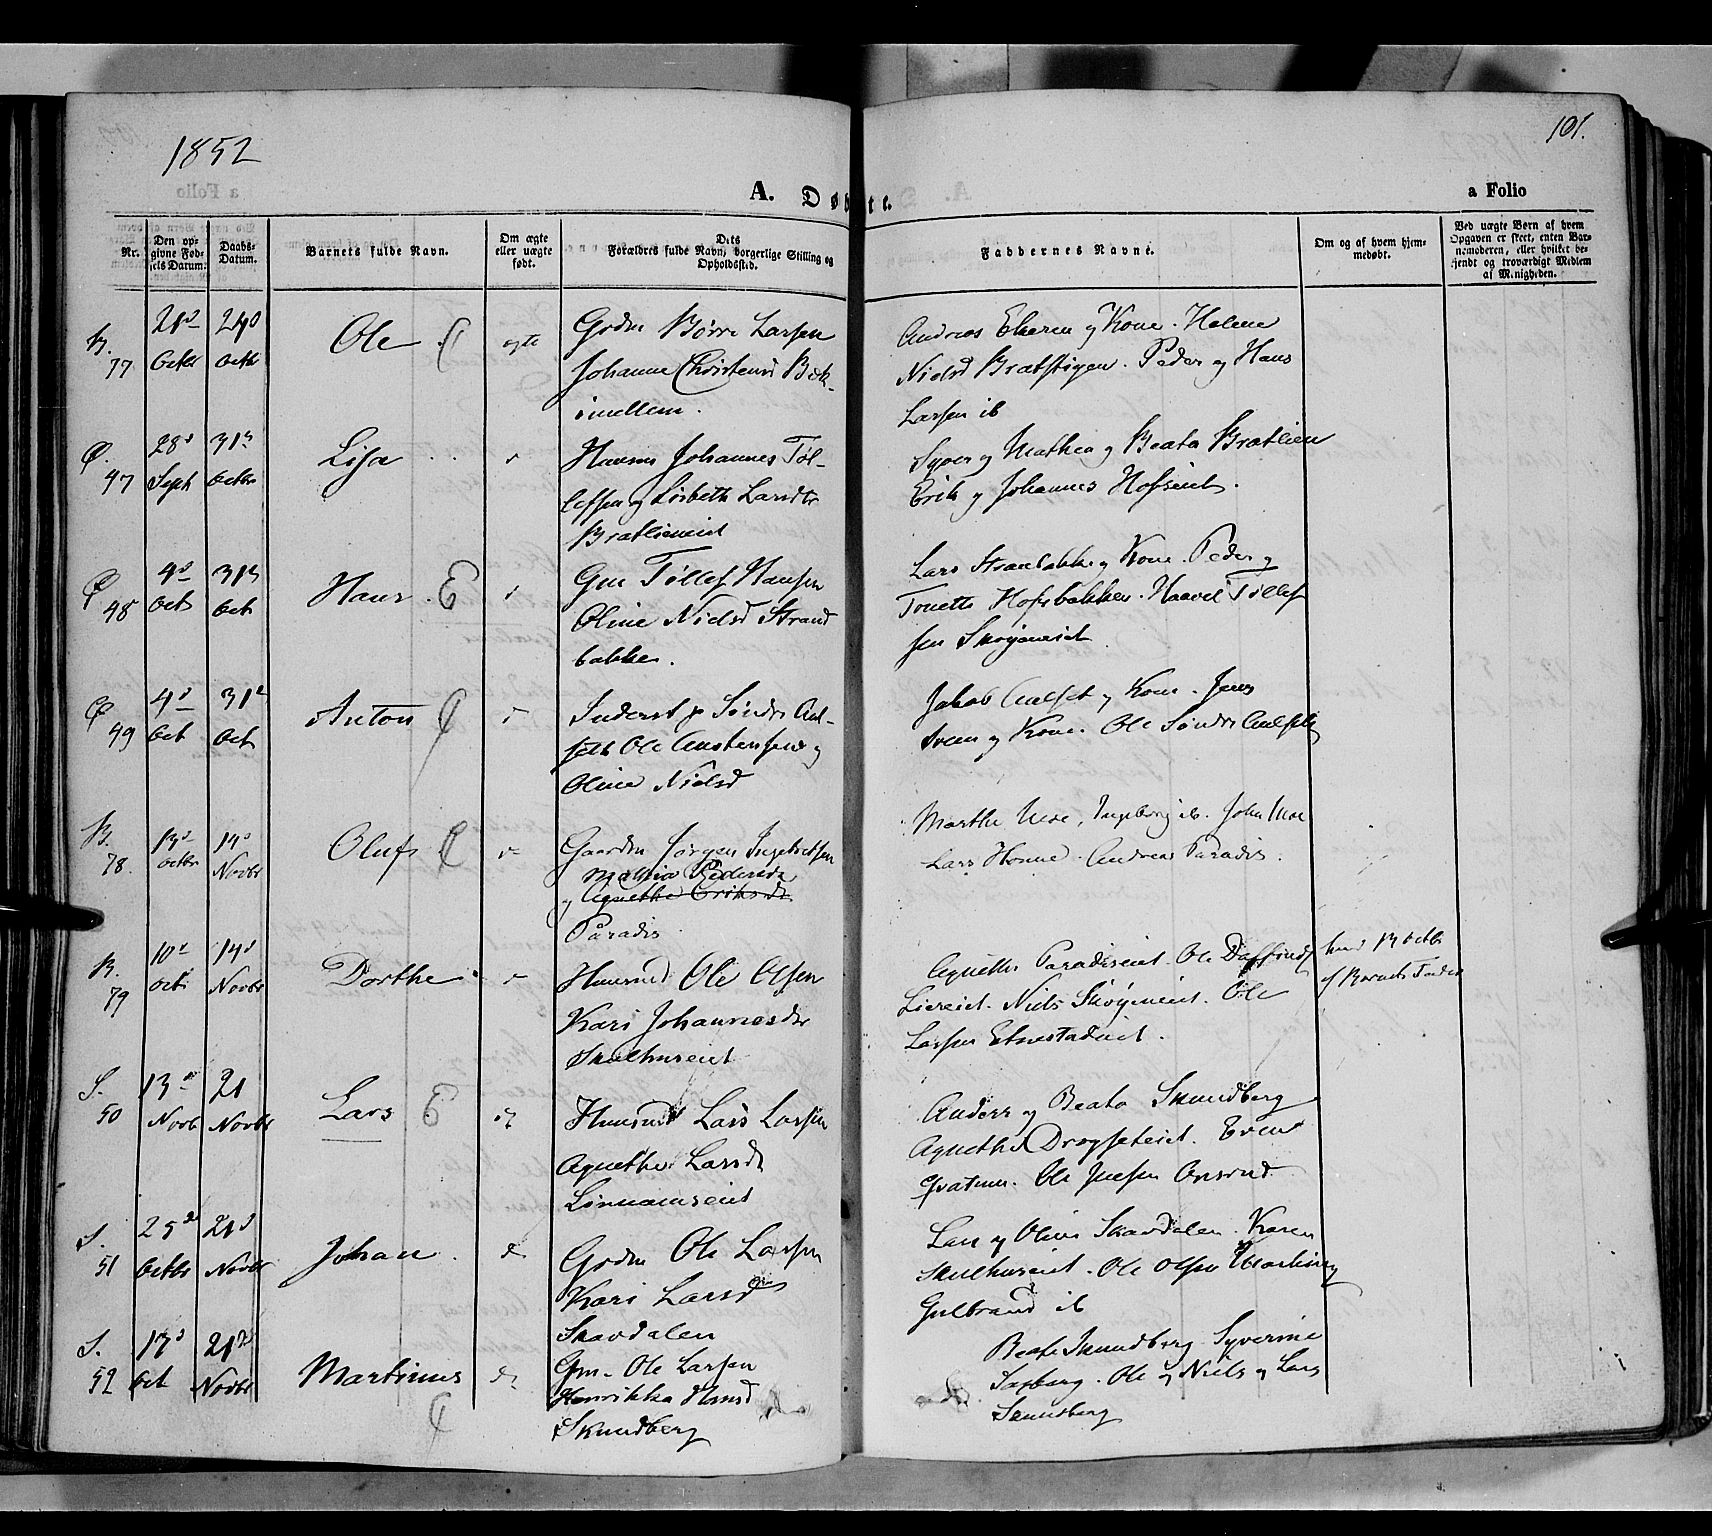 1852
101.
A. Døbte.
a Folio
Nr.
Den op-
givne Fød-
sels Datum.
Daabs-
Datum.
Barnets fulde Navn.
Om ægte
eller uægte
født.
Dets
Forældres fulde Navn, borgerlige Stilling og
Opholdssted.
Faddernes Navne.
Om og af hvem hjem-
medøbt.
Ved uægte Børn af hvem
Opgaven er skeet, enten Bar-
nemoderen, eller hvilket be-
kjendt og troværdigt Medlem
af Menigheden.
B. 77
21 Octbr
24 Octbr
Ole
ægte
Gdm Børre Larsen
Johanne Christensd Bæk-
imellem.
Andreas Ekeren og Kone. Helene
Nielsd Bratstigen. Peder og Hans
Larsen ib
Ø. 47
28 Sept
31 Octbr
Lisa
Huusm Johannes Tøl-
lefsen og Lisbeth Larsdtr
Bratlieneiet
Syver og Mathea og Beata Bratlien
Erik og Johannes Hofseiet.
Ø 48
4 Oct
31 Oct
Hans
Gm Tøllef Hansen
Oline Nielsd Strand
bakken.
Lars Strandbakke og Kone. Peder og
Tonette Hofsbakken. Haavel Tøllef
sen Skøyeneiet
Ø 49
4 Oct
31 Oct
Anton
Inderst p Søndre Aul-
seth Ole Austensen og
Oline Nielsd
Jakob Aulset og Kone. Jens
Sveen og Kone. Ole Søndre Aulseth
B. 78.
13 Octbr
14 Novbr
Oluf
Gaardm Jørgen Ingebretsen
Mathia Pedersdr
og Agnethe Eriksdr
Paradis
Marthe Moe, Ingeborg ib. John Moe
Lars Honne. Andreas Paradis.
B. 79
10 Oct
14 Novbr
Dorthe
Huusmd Ole Olsen
Kari Johannesdr
Skulhuseiet
Agnethe Paradiseiet. Ole Daffinds
Liereiet. Niels Skøyeneiet. Ole
Larsen Etnestadeiet.
af Barnets Fader
S. 50
13 Novb
21 Novbr
Lars
Huusmd Lars Larsen
Agnethe Larsd
Linnamseiet
Anders og Beata Skundberg
Agnethe Drogseteiet. Even
Ole Jensen Onsrud
S. 51
25 Octbr
21 Novbr
Johan
Gdm Ole Larsen
Kari Larsd
Skavdalen
Lars og Oline Skavdalen. Karen
Skulhuseiet. Ole Olsen
Gulbrand ib
S. 52
17 Oct
21 Novbr
Martinus
Gm. Ole Larsen
Henrikka Hansd
Skundberg
Beate Skundberg Syverine
Ole og Niels og Lars
Skundberg